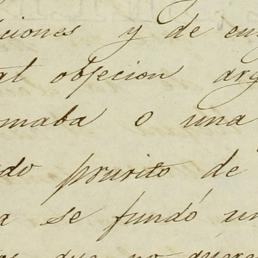 ciones y de en
al objecion arg
maba o una
do prurito de
a se fundó un
que no quer